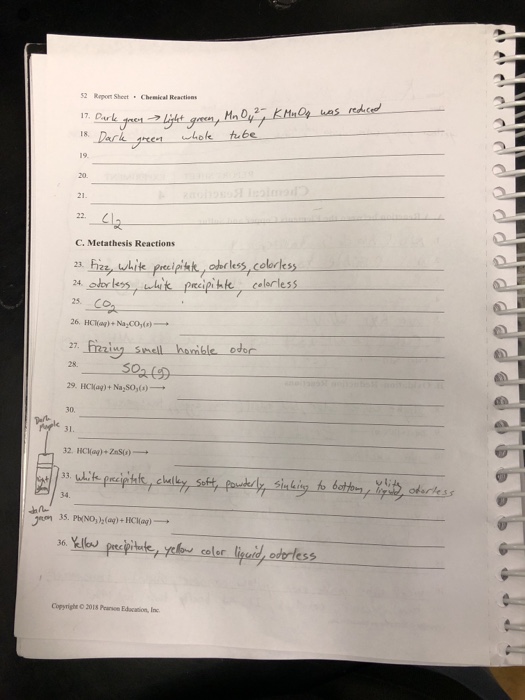 52 Report Sheet • Chemical Reactions
17. Dark green → light green, MnO4 2-, KMnO4 was reduced
18. Dark green whole tube
19.
20.
21.
22. Cl2
C. Metathesis Reactions
23. Fizz, white precipitate, odorless, colorless
24. odorless, white precipitate, colorless
25. CO2
26. HCl(aq) + Na2CO3(s) ⟶
27. Fizzing smell horrible odor
28. SO2 (g)
29. HCl(aq) + Na2SO3(s) ⟶
30.
Dark
Purple
31.
32. HCl(aq) + ZnS(s) ⟶
light
33. white precipitate, chalky, soft, powderly, sinking to bottom, white liquid, odorless
34.
dark
green
35. Pb(NO3)2(aq) + HCl(aq) ⟶
36. Yellow precipitate, yellow color liquid, odorless
Copyright © 2018 Pearson Education, Inc.